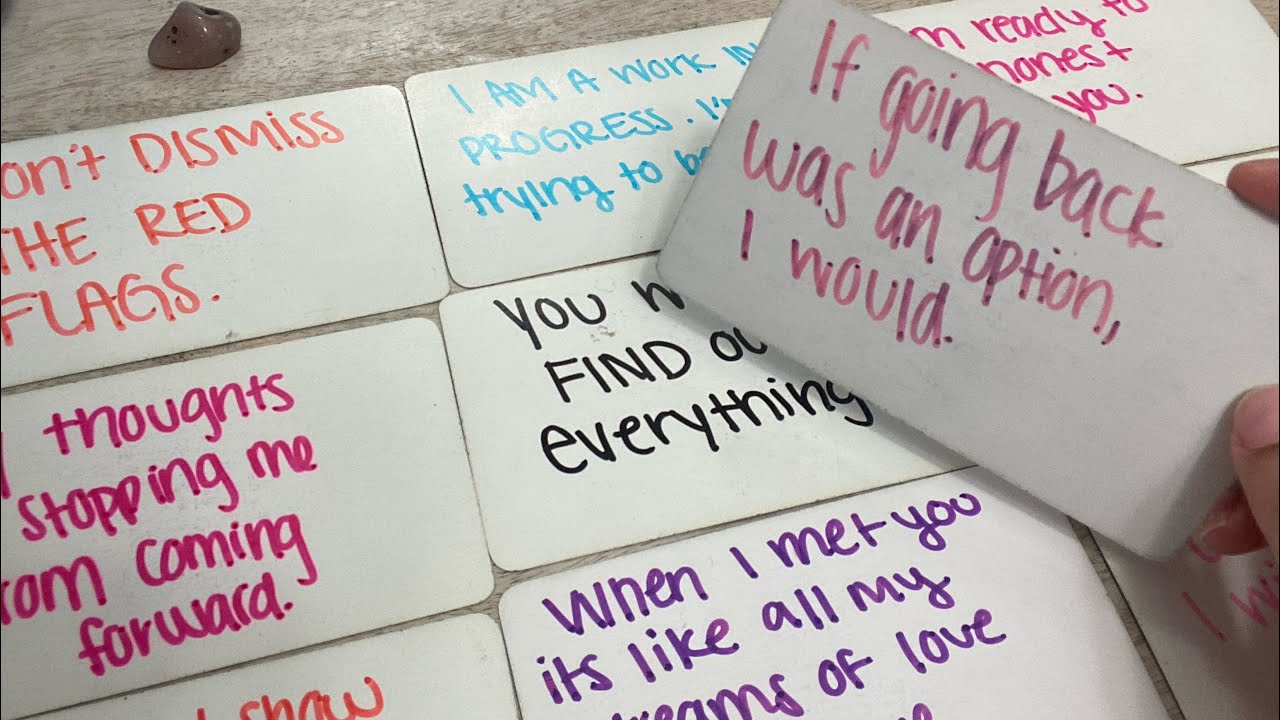 on't DISMISS
THE RED
FLAGS.
I AM A WORK IN
PROGRESS. I'
trying to be
m ready to
honest
you.
If going back
was an option,
I would.
thoughts
stopping me
rom coming
forward.
YOU
FIND OU
everything
When I met you
its like all my
dreams of love
show
I